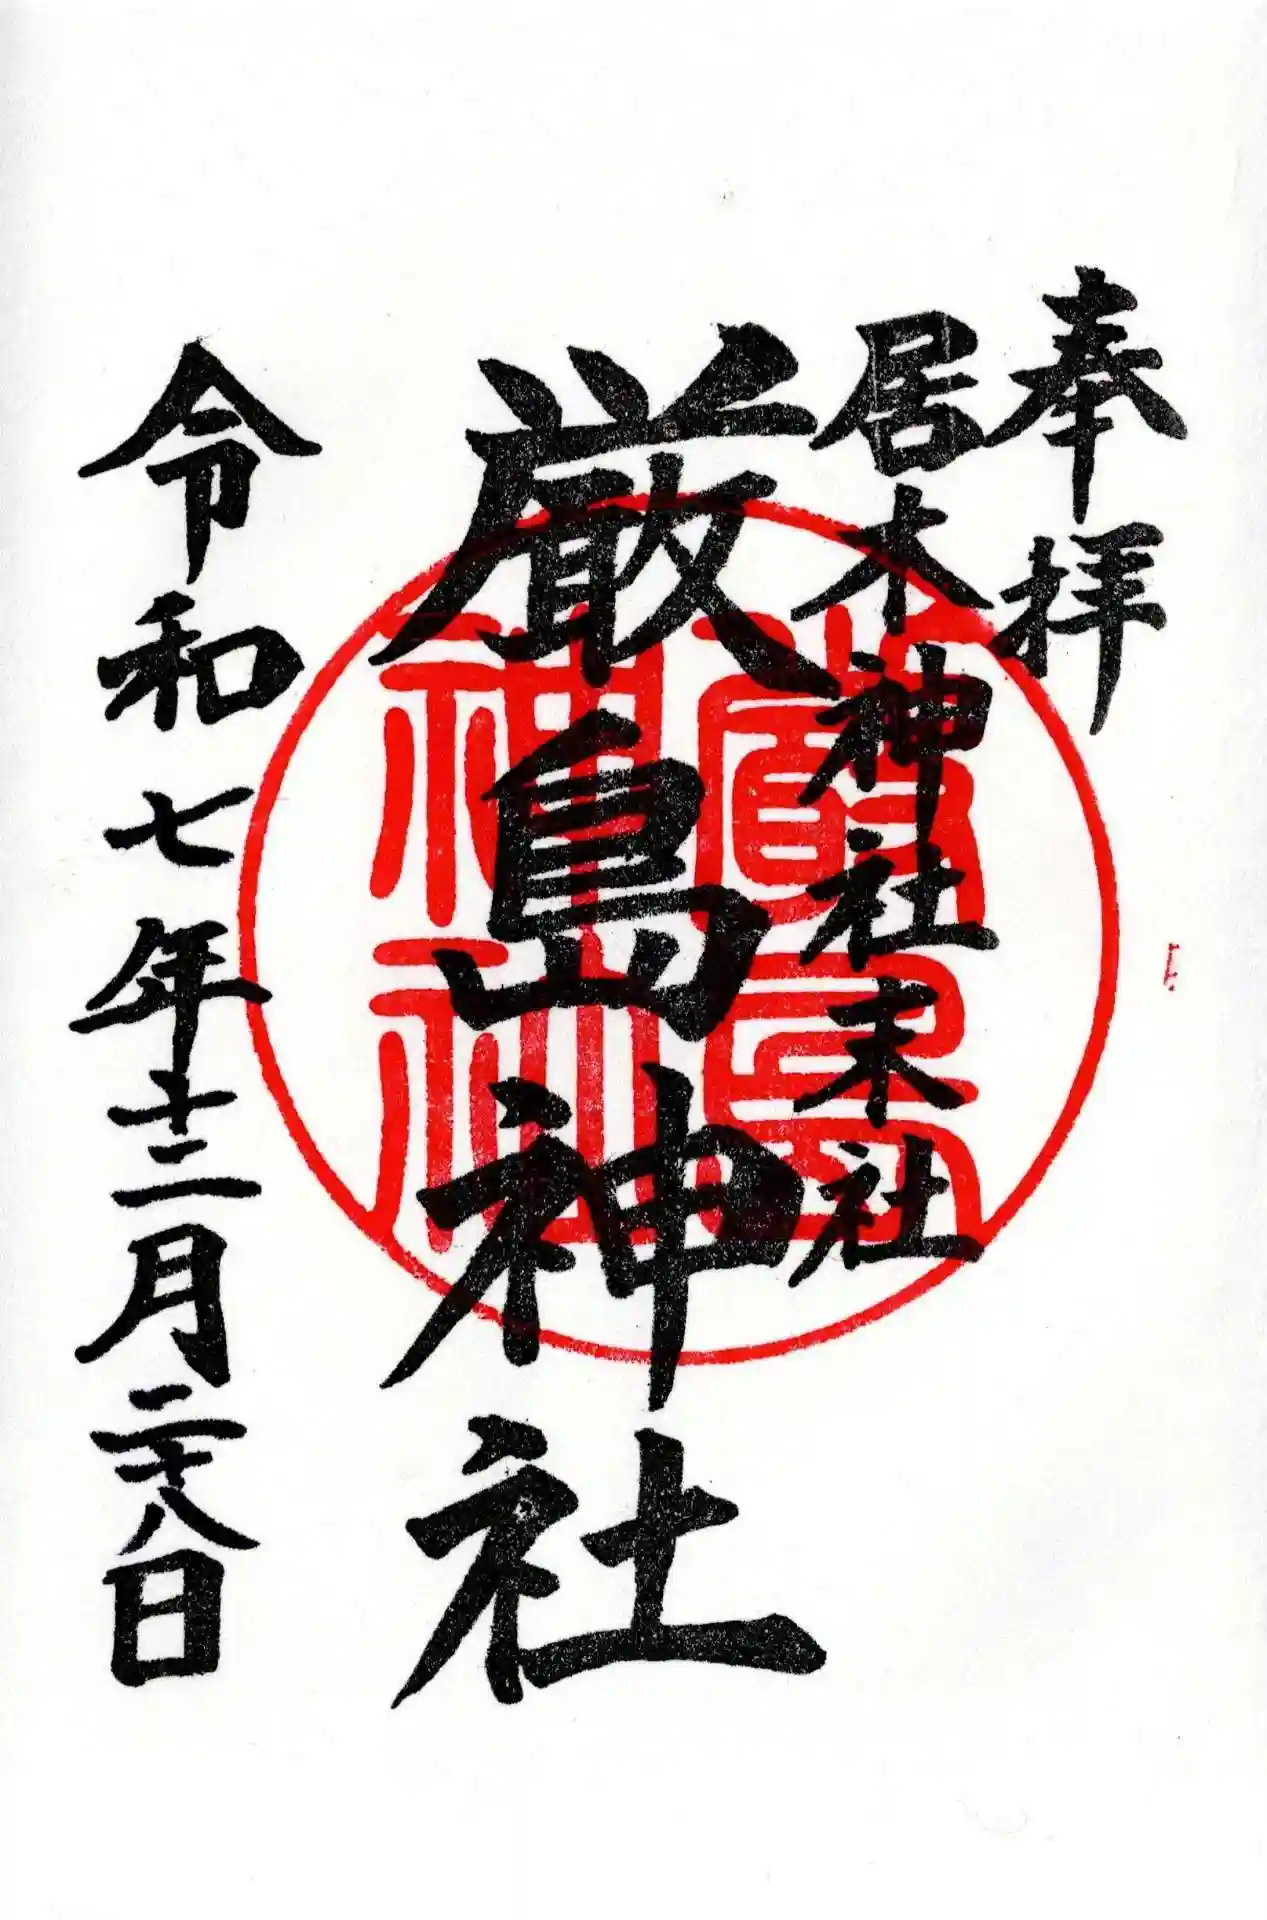 奉拝
居木神社末社
厳島神社
厳島
神社
令和七年十二月二十八日